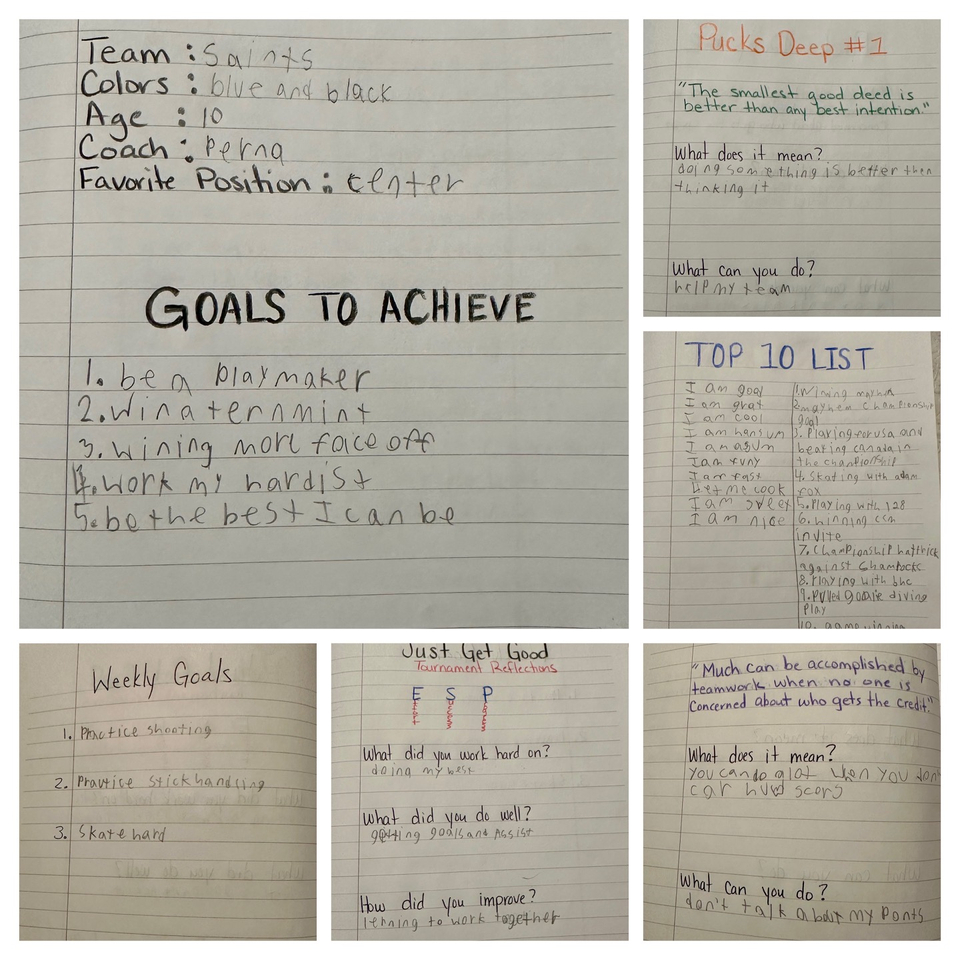 Team : Saints
Colors : blue and black
Age : 10
Coach : Perna
Favorite Position : center
GOALS TO ACHIEVE
1. be a playmaker
2. win a ternmint
3. wining more face off
4. work my hardist
5. be the best I can be
Pucks Deep #1
"The smallest good deed is
better than any best intention."
What does it mean?
doing something is better then
thinking it
What can you do?
help my team
TOP 10 LIST
I am good
I am grat
I am cool
I am hansum
I am
I am funy
I am fast
Let me cook
I am
I am nice
1. Wining
2. mayhem championship
goal
3. Playing for usa and
beating canada in
the championship
4. Skating with adam
fox
5. Playing with 128
6. winning ccm
invite
7. championship hattrick
against
8. Playing with bhc
9. Pulled goalie diving
Play
10. game winning
Weekly Goals
1. Practice shooting
2. Practice stick handling
3. Skate hard
Just Get Good
Tournament Reflections
E S P
What did you work hard on?
doing my best
What did you do well?
getting goals and Assist
How did you improve?
lerning to work together
"Much can be accomplished by
teamwork when no one is
concerned about who gets the credit."
What does it mean?
You can do alot when you don
car scors
What can you do?
don't talk about my Ponts